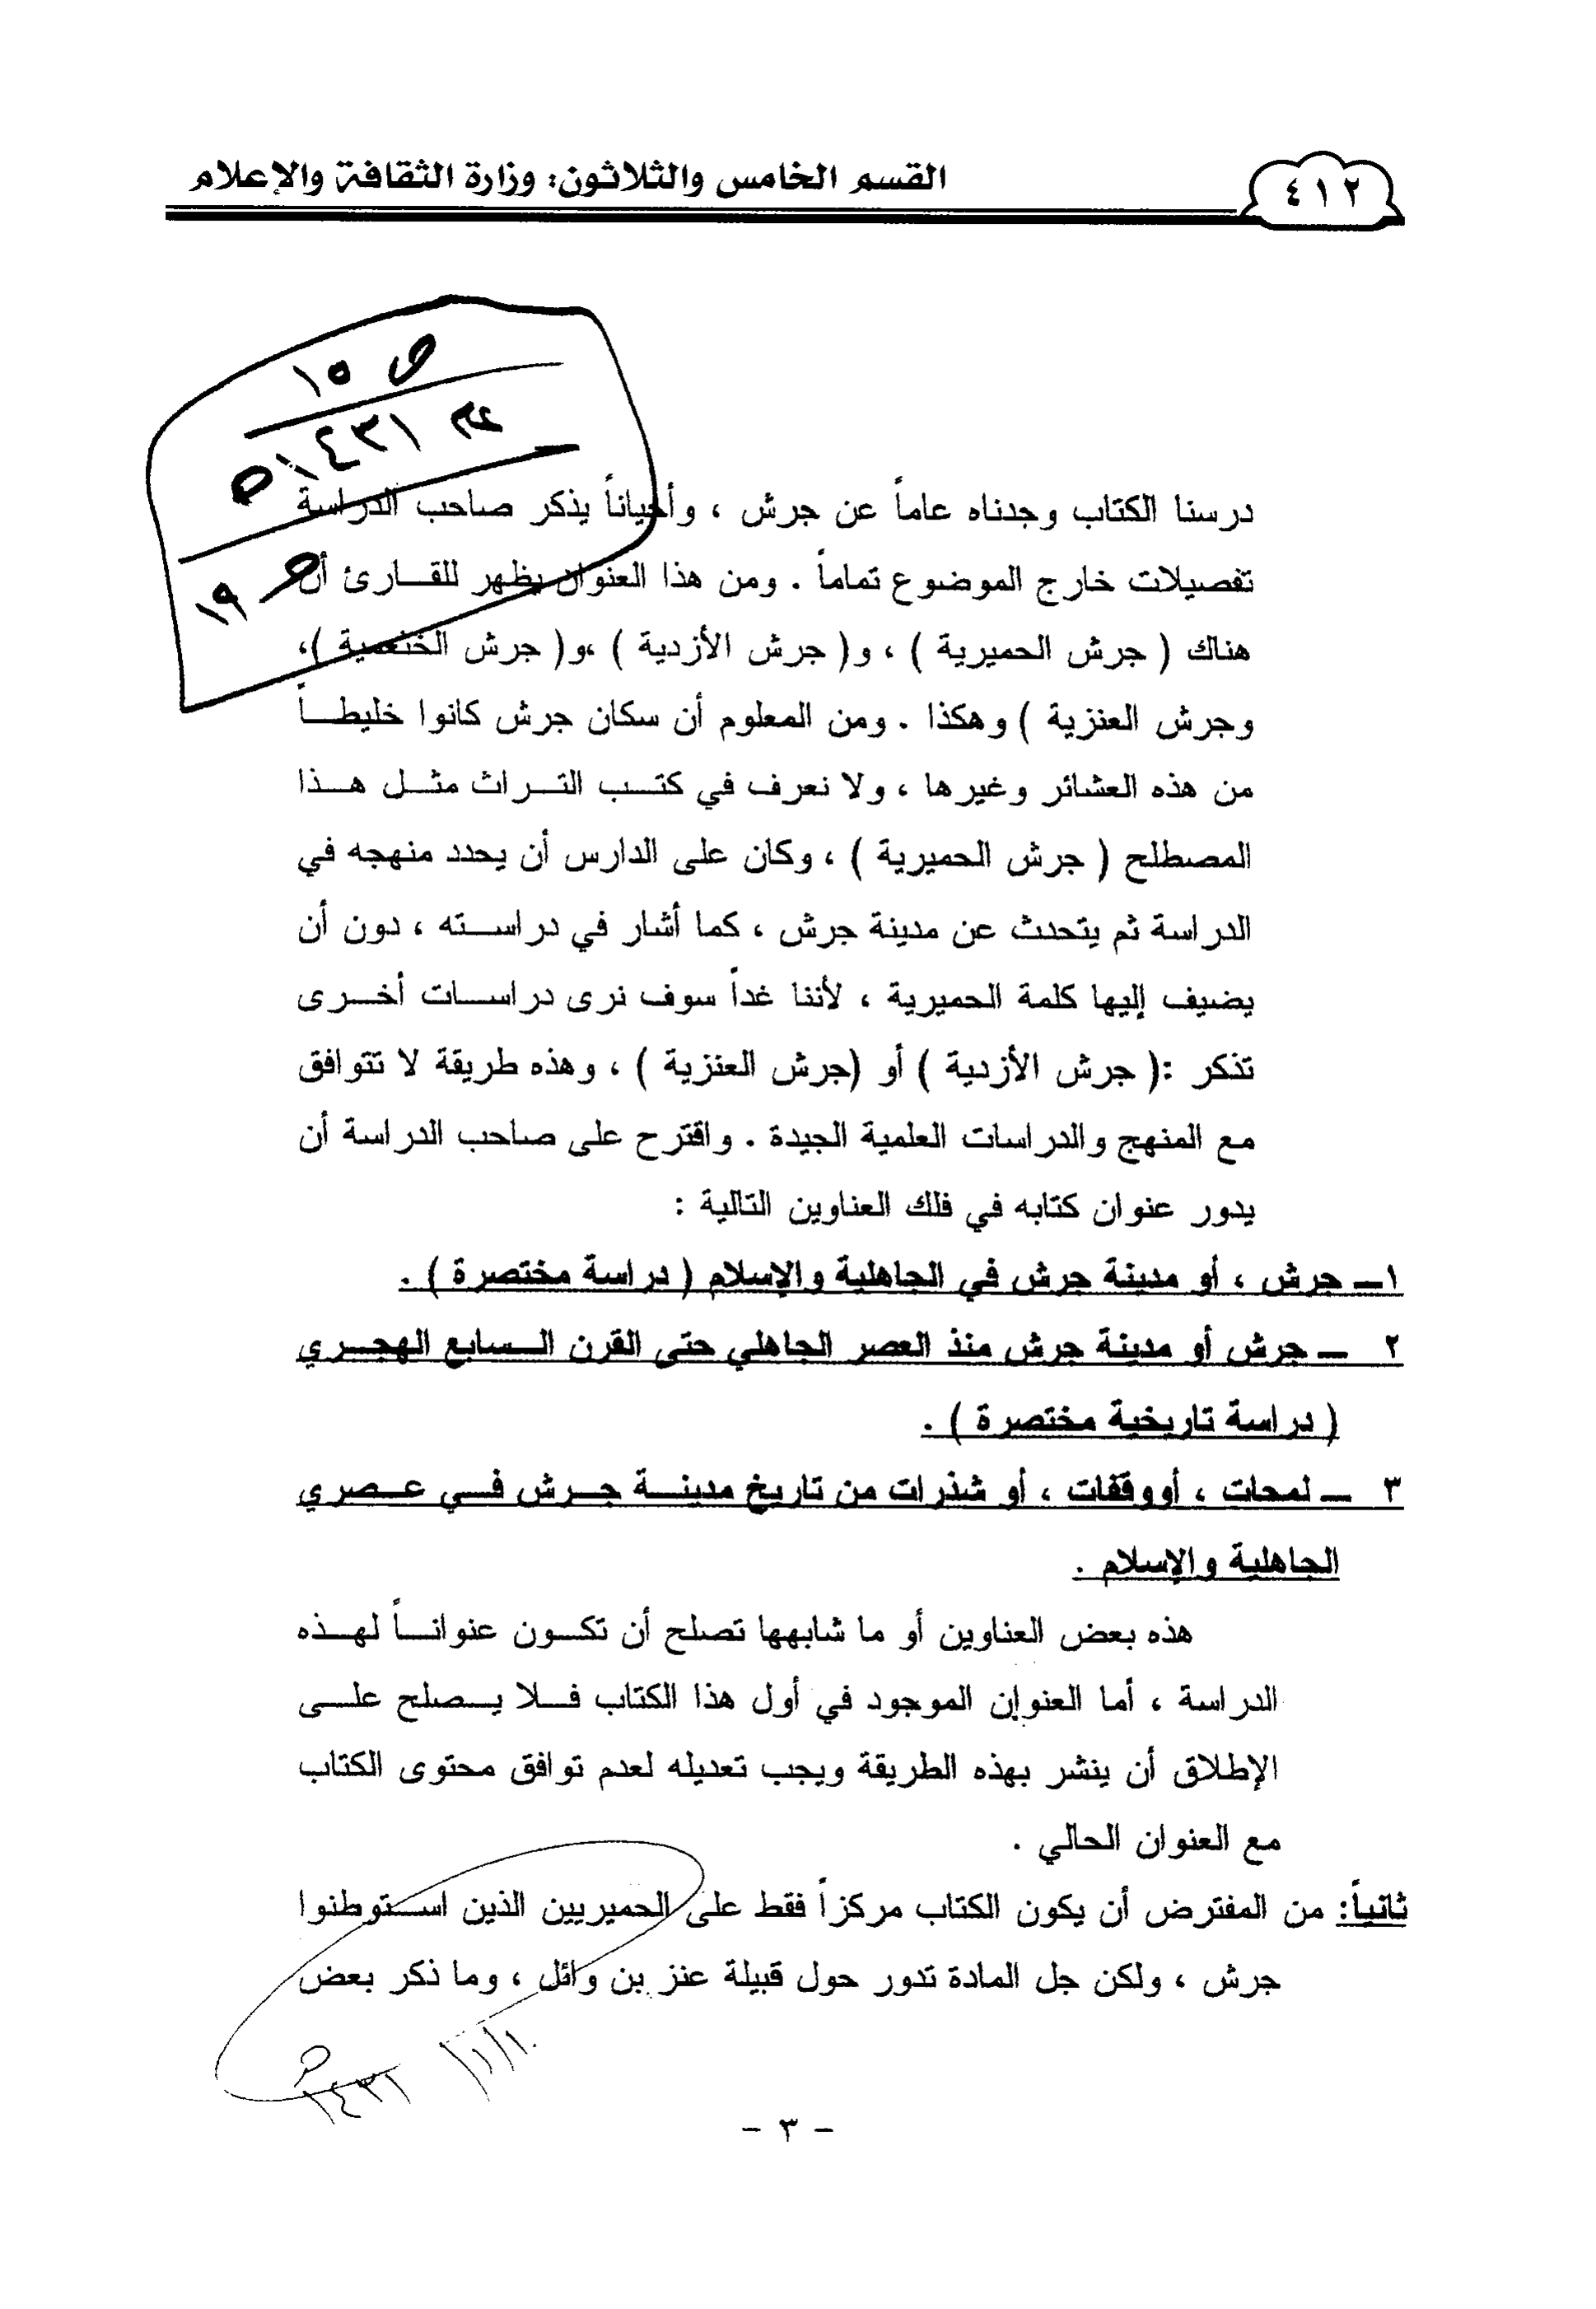 ٤١٢
القسم الخامس والثلاثون: وزارة الثقافة والإعلام
ص ١٥
عام ١٤٣١هـ
ص ١٩
درسنا الكتاب وجدناه عاماً عن جرش ، وأحياناً يذكر صاحب الدراسة
تفصيلات خارج الموضوع تماماً . ومن هذا العنوان يظهر للقارئ أن
هناك ( جرش الحميرية ) ، و( جرش الأزدية ) ،و( جرش الخثعمية )،
وجرش العنزية ) وهكذا . ومن المعلوم أن سكان جرش كانوا خليطاً
من هذه العشائر وغيرها ، ولا نعرف في كتب التراث مثل هذا
المصطلح ( جرش الحميرية ) ، وكان على الدارس أن يحدد منهجه في
الدراسة ثم يتحدث عن مدينة جرش ، كما أشار في دراسته ، دون أن
يضيف إليها كلمة الحميرية ، لأننا غداً سوف نرى دراسات أخرى
تذكر :( جرش الأزدية ) أو (جرش العنزية ) ، وهذه طريقة لا تتوافق
مع المنهج والدراسات العلمية الجيدة . واقترح على صاحب الدراسة أن
يدور عنوان كتابه في فلك العناوين التالية :
١ــ جرش ، أو مدينة جرش في الجاهلية والإسلام ( دراسة مختصرة ) .
٢ ــ جرش أو مدينة جرش منذ العصر الجاهلي حتى القرن السابع الهجري
( دراسة تاريخية مختصرة ) .
٣ ــ لمحات ، أووقفات ، أو شذرات من تاريخ مدينة جرش في عصري
الجاهلية والإسلام .
هذه بعض العناوين أو ما شابهها تصلح أن تكون عنواناً لهذه
الدراسة ، أما العنوان الموجود في أول هذا الكتاب فلا يصلح على
الإطلاق أن ينشر بهذه الطريقة ويجب تعديله لعدم توافق محتوى الكتاب
مع العنوان الحالي .
ثانياً: من المفترض أن يكون الكتاب مركزاً فقط على الحميريين الذين استوطنوا
جرش ، ولكن جل المادة تدور حول قبيلة عنز بن وائل ، وما ذكر بعض
- ٣ -